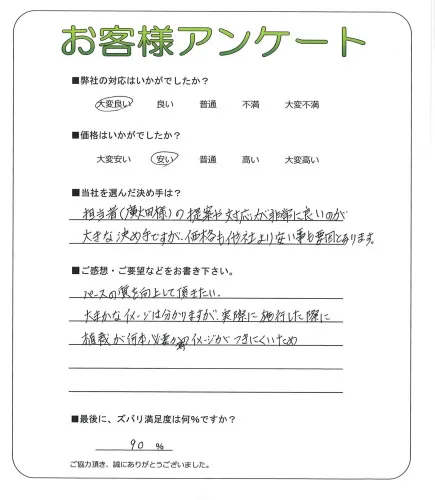 お客様アンケート
■弊社の対応はいかがでしたか?
大変良い 良い 普通 不満 大変不満
■価格はいかがでしたか?
大変安い 安い 普通 高い 大変高い
■当社を選んだ決め手は?
担当者(廣田様)の提案や対応が非常に良いのが
大きな決め手ですが、価格も他社より安い事も要因とあります。
■ご感想・ご要望などをお書き下さい。
パースの質を向上して頂きたい。
大まかなイメージは分かりますが、実際に施行した際に
植栽が何本必要か イメージがつきにくいため
■最後に、ズバリ満足度は何%ですか?
90 %
ご協力頂き、誠にありがとうございました。